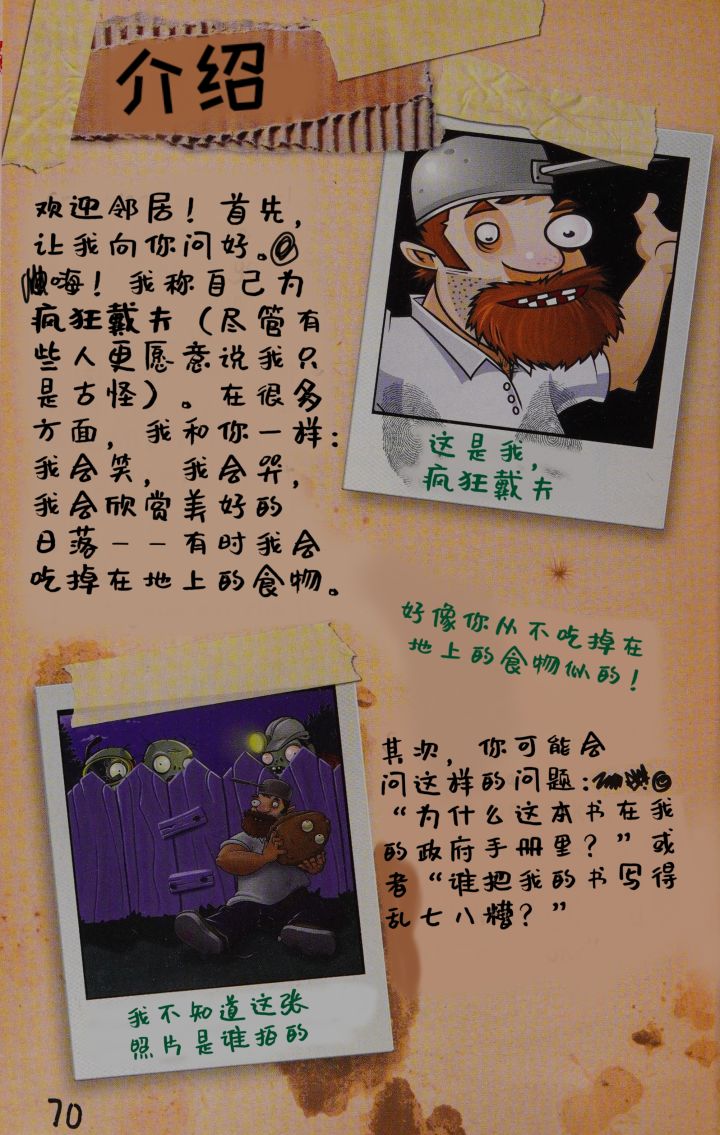 介绍
欢迎邻居！首先，
让我向你问好。
嗨！我称自己为
疯狂戴夫（尽管有
些人更愿意说我只
是古怪）。在很多
方面，我和你一样：
我会笑，我会哭，
我会欣赏美好的
日落－－有时我会
吃掉在地上的食物。
这是我，
疯狂戴夫
好像你从不吃掉在
地上的食物似的！
其次，你可能会
问这样的问题：
“为什么这本书在我
的政府手册里？”或
者“谁把我的书写得
乱七八糟？”
我不知道这张
照片是谁拍的
70